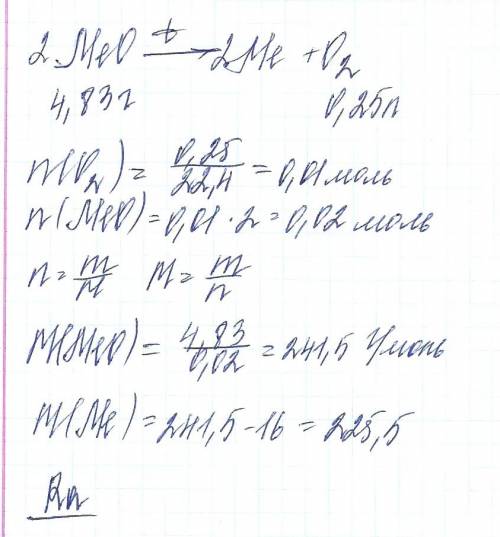 2 MeO —t→ 2Me + O2
4,83г 0,25л
n(O2) = 0,25/22,4 = 0,01 моль
n(MeO) = 0,01 · 2 = 0,02 моль
n = m/M M = m/n
M(MeO) = 4,83/0,02 = 241,5 г/моль
M(Me) = 241,5 - 16 = 225,5
Ra